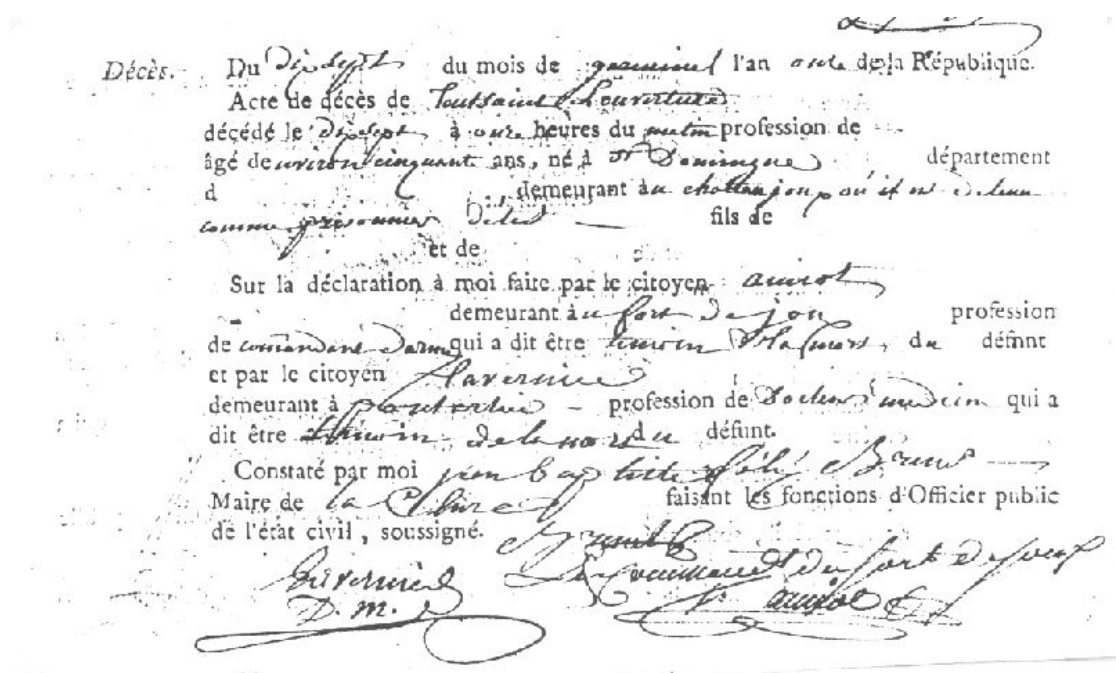 Décès. Du dix sept du mois de germinal l'an onze de la République.
Acte de décès de Toussaint Louverture
décédé le dix sept à onze heures du matin profession de
âgé de environ cinquant ans, né à St Domingue département
d demeurant au chatteau jou, où il est detenu
comme prisonnier détat fils de
et de
Sur la déclaration à moi faite par le citoyen amiot
demeurant au fort de jou profession
de comandant darme qui a dit être temoin de la mort du défunt
et par le citoyen
demeurant à profession de docteur medecin qui a
dit être temoin de la mort du défunt.
Constaté par moi jean baptiste
Maire de la Cluse faisant les fonctions d'Officier public
de l'état civil, soussigné.
Le Commandt du fort de joux
D. m. amiot